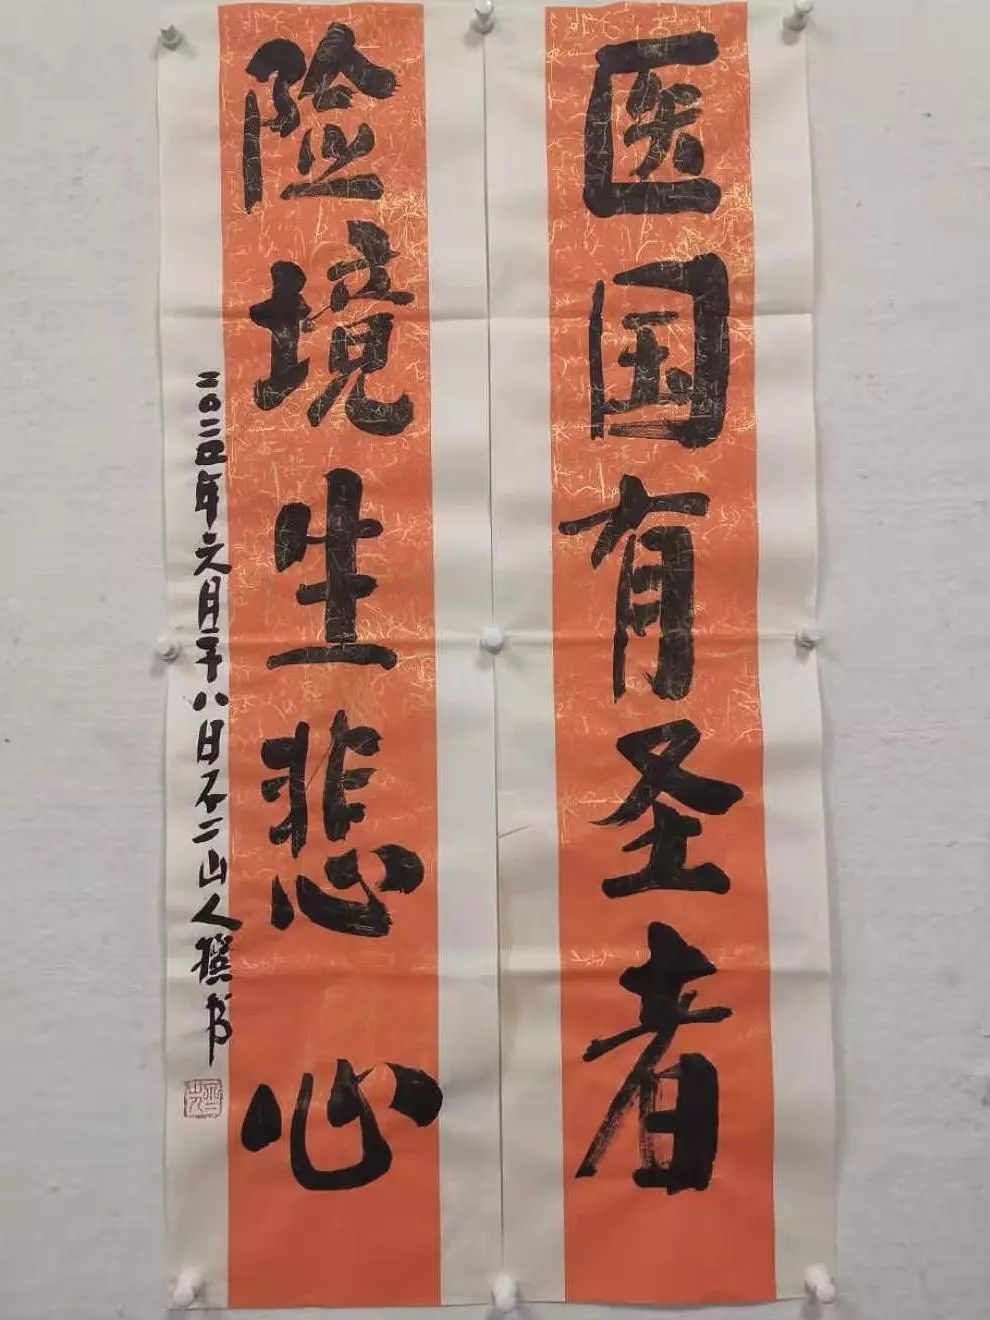 医国有圣者
险境生悲心
二〇二五年六月十八日不二山人撰书